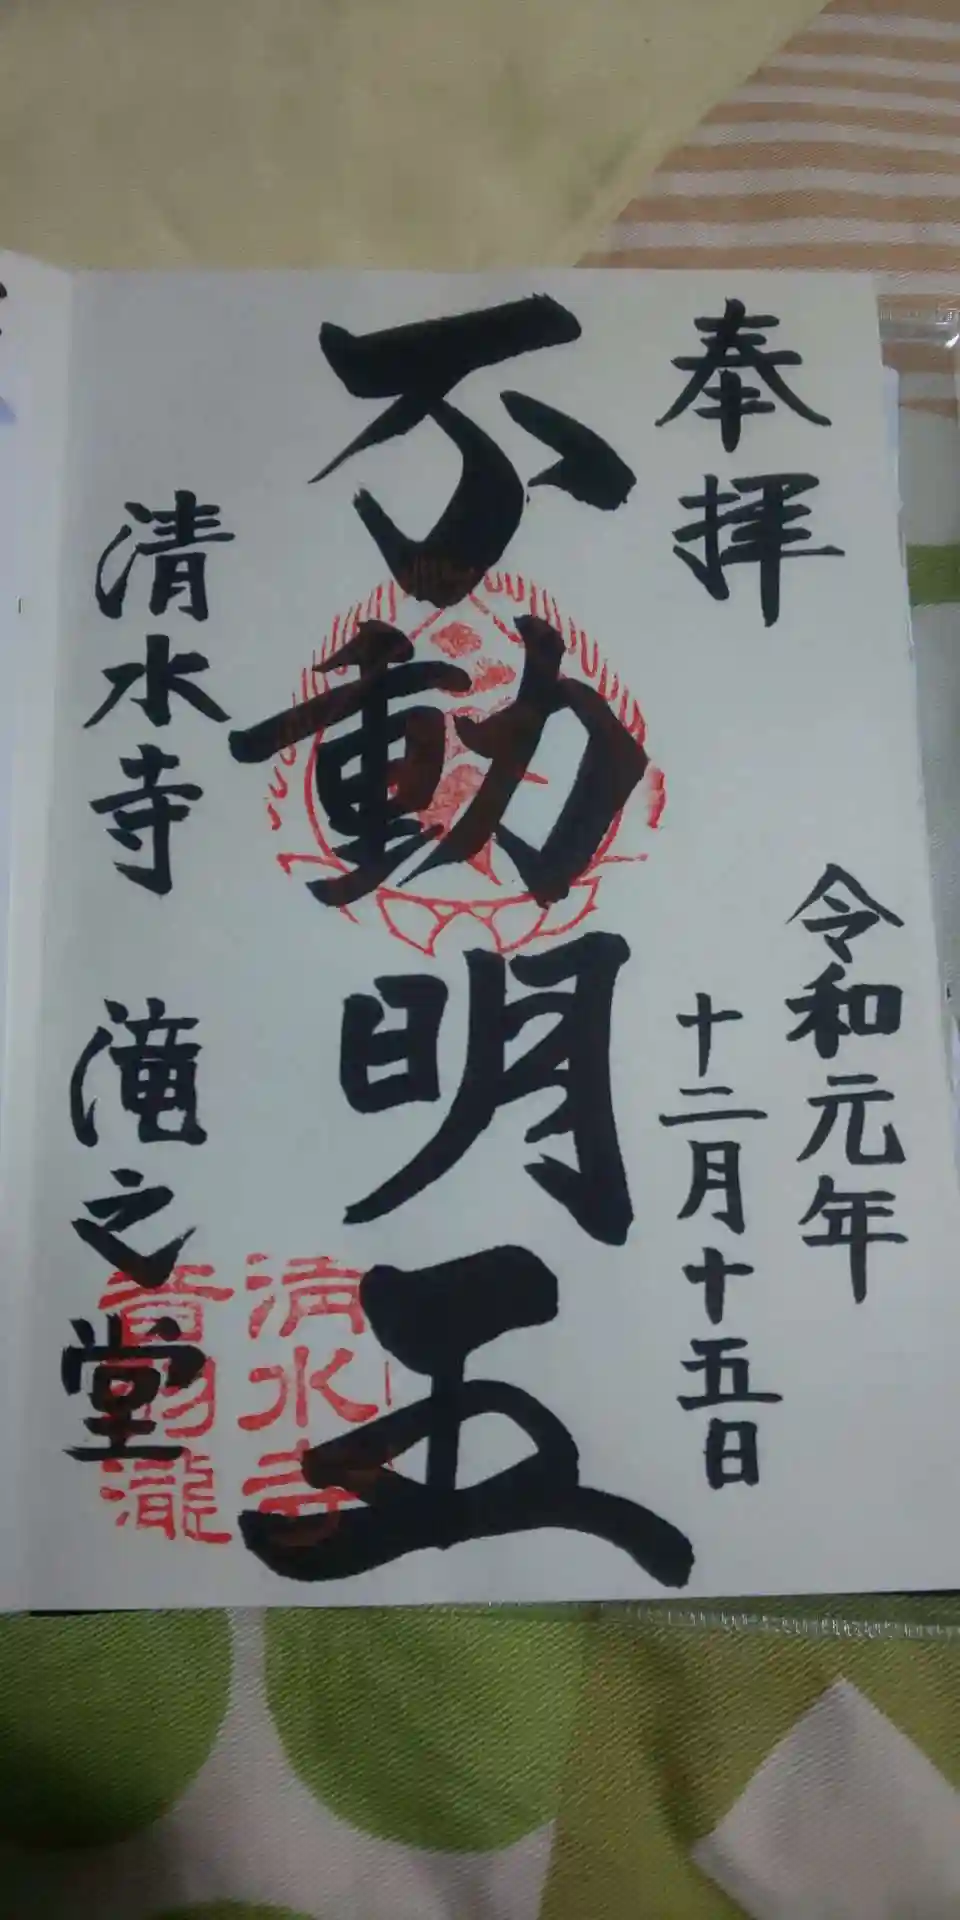 奉拝
令和元年
十二月十五日
不動明王
清水寺 滝之堂
清水寺
音羽瀧